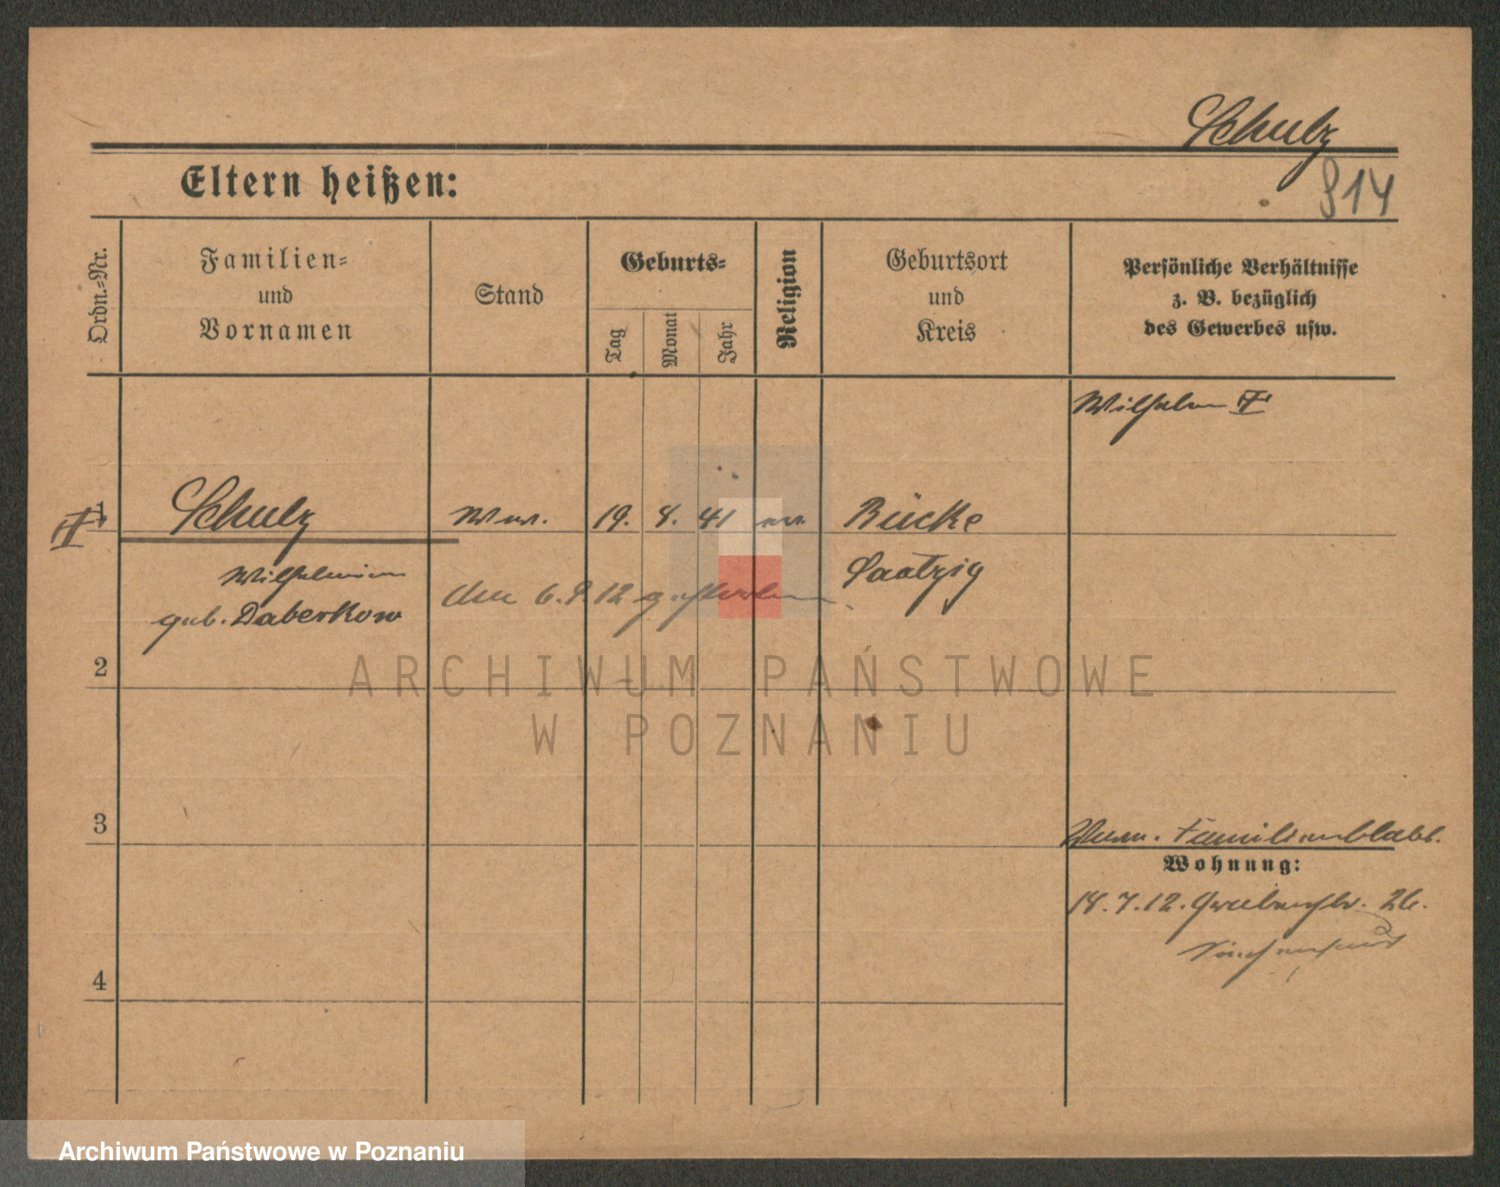 Schulz
914
Eltern heißen:
Ordn.-Nr.
Familien-
und
Vornamen
Stand
Geburts-
Tag
Monat
Jahr
Religion
Geburtsort
und
Kreis
Persönliche Verhältnisse
z. B. bezüglich
des Gewerbes usw.
Wilhelm
1
Schulz
Ww.
19. 8. 41
ev.
Bücke
Wilhelmine
geb. Daberkow
den 6. 9. 12 gestorben
Saatzig
2
ARCHIWUM PAŃSTWOWE
W POZNANIU
3
Familienblatt.
Wohnung:
18. 7. 12. 26.
Siechenhaus
4
Archiwum Państwowe w Poznaniu